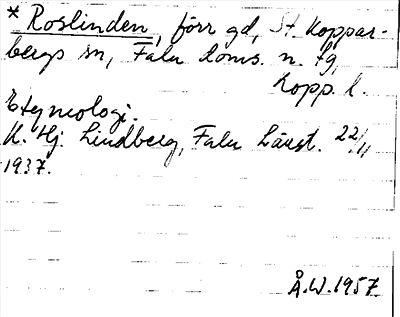 * Roslinden, förr gd, St. Koppar-
bergs sn, Falu doms. n. tg,
Kopp. l.
Etymologi.
K. Hj. Lindberg, Falu Länst. 22/11
1937.
Å.W.1957